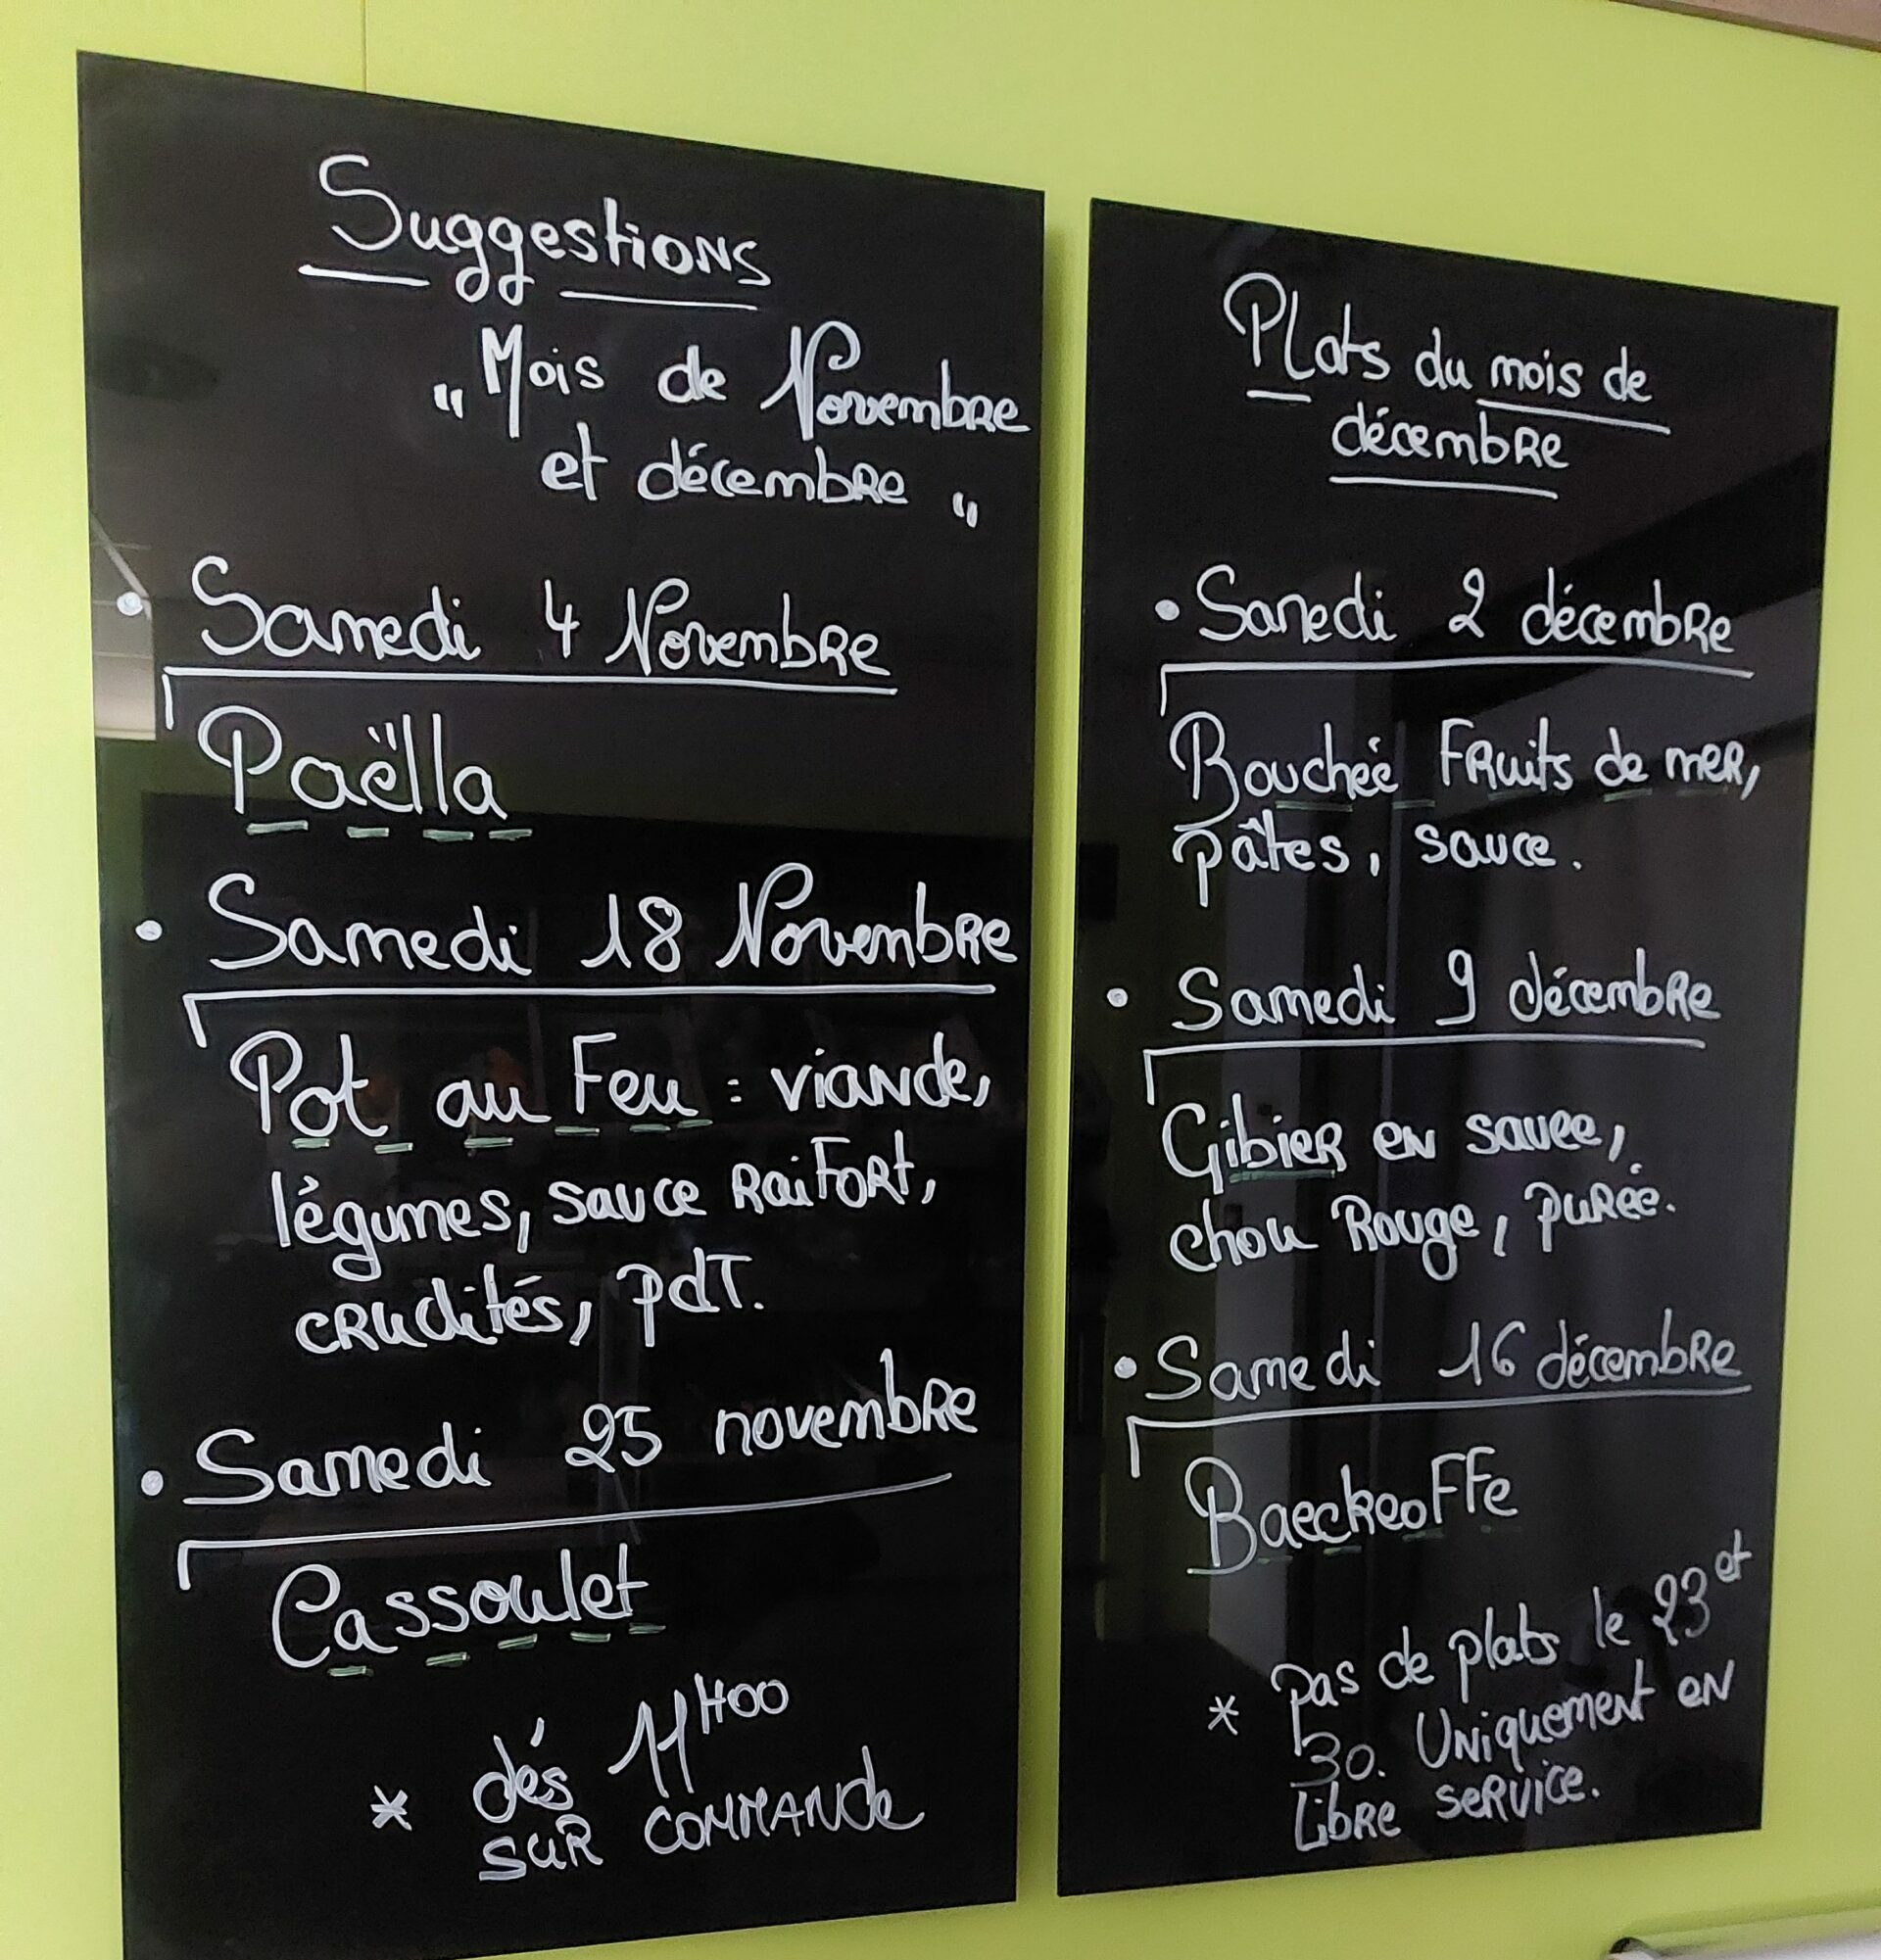 Suggestions
"Mois de Novembre
et décembre"
• Samedi 4 Novembre
Paëlla
• Samedi 18 Novembre
Pot au Feu : viande,
légumes, sauce Raifort,
crudités, pdT.
• Samedi 25 novembre
Cassoulet
* dés 11H00
sur commande
Plats du mois de
décembre
• Samedi 2 décembre
Bouchée Fruits de mer,
pâtes, sauce.
• Samedi 9 décembre
Gibier en sauce,
chou Rouge, purée.
• Samedi 16 décembre
Baeckeoffe
* pas de plats le 23 et
30. Uniquement en
Libre service.